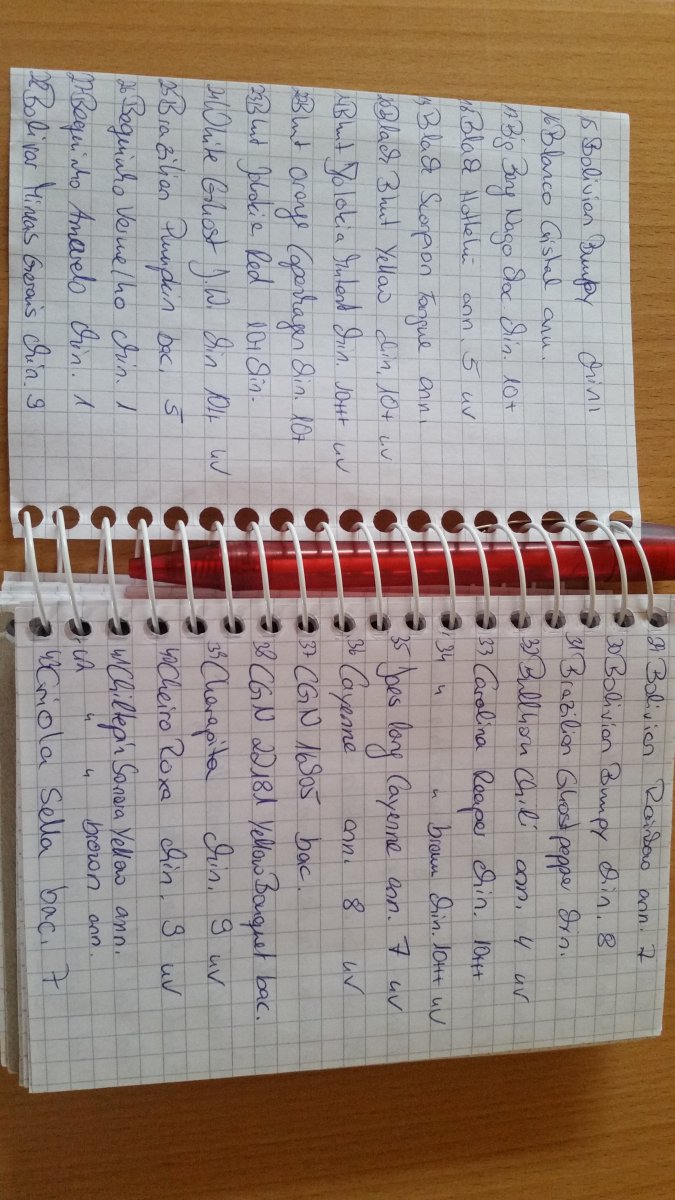 15 Bolivian Bumpy chin.
16 Blanco Cristal ann.
17 Big Bang Naga Choc chin. 10+
18 Black Hotteim ann. 5 uv
19 Black Scorpion Tongue ann.
20 Black Bhut Yellow chin. 10+ uv
21 Bhut Jolokia chin. 10++ uv
22 Bhut orange Copenhagen chin. 10+
23 Bhut Jolokia Red 10 chin.
24 White Ghost J.W. chin 10+ uv
25 Brazilian Pumpkin bac. 5
26 Boquinho Vermelho chin. 1
27 Boquinho Amarelo chin. 1
28 Bolivar Minas Gerais chin. 9
29 Bolivian Rainbow ann. 7
30 Bolivian Bumpy chin. 8
31 Brazilian Ghostpepper chin.
32 Bullhorn Chili ann. 4 uv
33 Carolina Reaper chin. 10++
34 " " brown chin. 10++ uv
35 Joes long Cayenne ann. 7 uv
36 Cayenne ann. 8 uv
37 CGN 16905 bac.
38 CGN 22181 Yellow Bouquet bac.
39 Charapita chin. 9 uv
40 Cheiro Roxa chin. 9 uv
41 Chiltepin Sonora Yellow ann.
42 " " brown ann.
43 Criolla Sella bac. 7